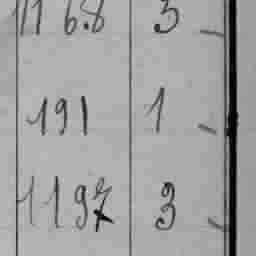 1168 3 -
191 1 -
1197 3 -